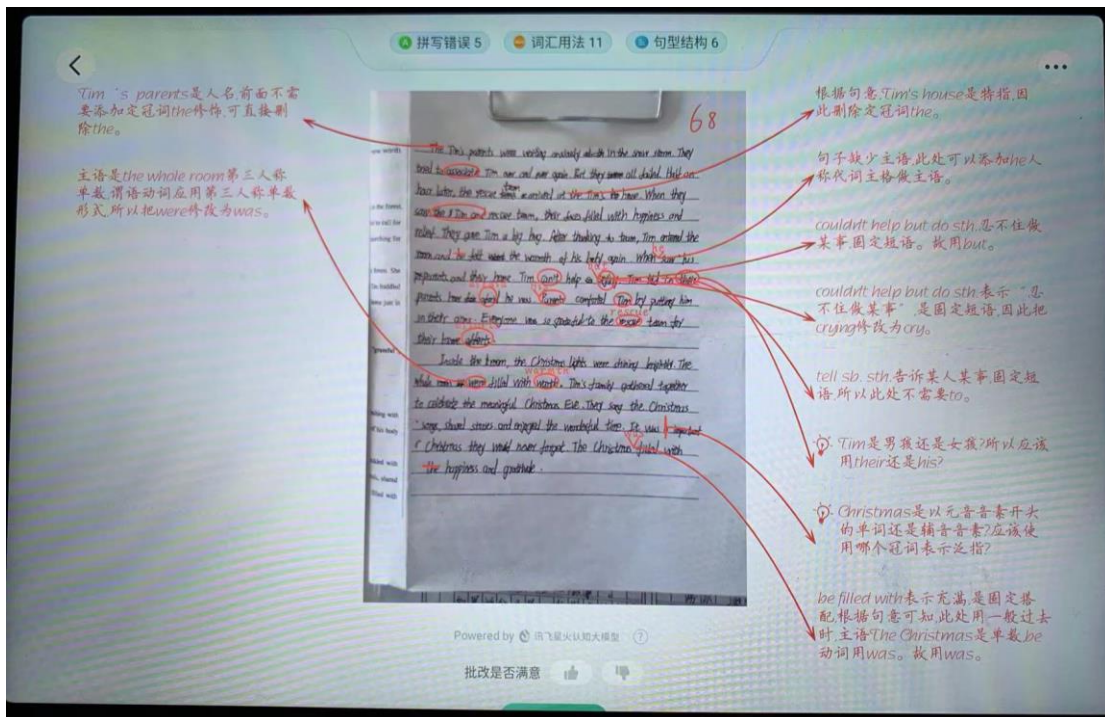 拼写错误 5 词汇用法 11 句型结构 6
Tim's parents是人名,前面不需
要添加定冠词the修饰,可直接删
除the。
主语是the whole room第三人称
单数,谓语动词应用第三人称单数
形式,所以把were修改为was。
68
The Tim's parents were waiting anxiously in the snow storm. They
tried to Tim over and over again. But they all failed. Half an
hour later, the rescue team arrived at the Tim's house. When they
saw Tim and rescue team, their faces filled with happiness and
relief. They gave Tim a big hug. After thanking to team, Tim entered the
room and he felt the warmth of his family again. When saw his
parents and their home Tim can't help Tim in their
parents how he was. comforted Tim by putting him
in their arms. Everyone was so grateful to the team for
rescue
their
Inside the room, the Christmas lights were shining brightly. The
whole were filled with Tim's family gathered together
warmth
to celebrate the meaningful Christmas Eve. They sang the Christmas
songs, shared stories and enjoyed the wonderful time. It was important
Christmas they would never forget. The Christmas filled with
the happiness and gratitude.
根据句意,Tim's house是特指,因
此删除定冠词the。
句子缺少主语,此处可以添加he人
称代词主格做主语。
couldn't help but do sth.忍不住做
某事,固定短语。故用but。
couldn't help but do sth.表示“忍
不住做某事”,是固定短语,因此把
crying修改为cry。
tell sb. sth.告诉某人某事,固定短
语,所以此处不需要to。
Tim是男孩还是女孩?所以应该
用their还是his?
Christmas是以元音音素开头
的单词还是辅音音素?应该使
用哪个冠词表示泛指?
be filled with表示充满,是固定搭
配,根据句意可知,此处用一般过去
时,主语The Christmas是单数,be
动词用was。故用was。
Powered by 讯飞星火认知大模型
批改是否满意